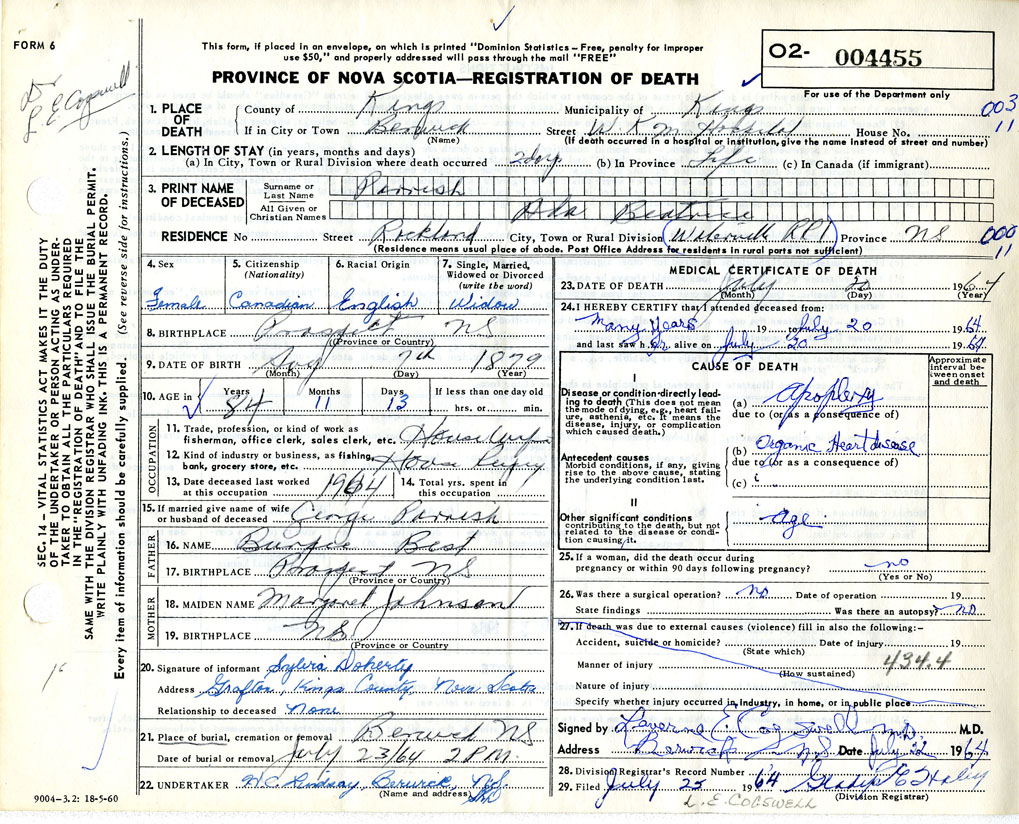 FORM 6
This form, if placed in an envelope, on which is printed "Dominion Statistics – Free, penalty for improper
use $50," and properly addressed will pass through the mail "FREE"
PROVINCE OF NOVA SCOTIA—REGISTRATION OF DEATH
O2- 004455
For use of the Department only
Dr.
L E Cogswell
003
11
1. PLACE OF DEATH { County of Kings Municipality of Kings
If in City or Town Berwick Street W. K. M. Hospital House No.
(Name) (If death occurred in a hospital or institution, give the name instead of street and number)
2. LENGTH OF STAY (in years, months and days)
(a) In City, Town or Rural Division where death occurred 2 days (b) In Province Life (c) In Canada (if immigrant)
3. PRINT NAME OF DECEASED
Surname or Last Name Parrish
All Given or Christian Names Ada Beatrice
RESIDENCE No Street Rockland City, Town or Rural Division (Waterville RR1) Province NS
(Residence means usual place of abode. Post Office Address for residents in rural parts not sufficient)
000
11
4. Sex 5. Citizenship (Nationality) 6. Racial Origin 7. Single, Married, Widowed or Divorced (write the word)
Female Canadian English Widow
8. BIRTHPLACE Prospect NS
(Province or Country)
9. DATE OF BIRTH Aug 7th 1879
(Month) (Day) (Year)
10. AGE in Years Months Days If less than one day old
84 11 13 hrs. or min.
OCCUPATION
11. Trade, profession, or kind of work as fisherman, office clerk, sales clerk, etc. Housewife
12. Kind of industry or business, as fishing, bank, grocery store, etc. House
13. Date deceased last worked at this occupation 1964 14. Total yrs. spent in this occupation
15. If married give name of wife or husband of deceased George Parrish
FATHER
16. NAME Best
17. BIRTHPLACE Prospect NS
(Province or Country)
MOTHER
18. MAIDEN NAME Margaret Johnson
19. BIRTHPLACE NS
(Province or Country)
20. Signature of informant Sylvia Doherty
Address Grafton, Kings County, Nova Scotia
Relationship to deceased None
21. Place of burial, cremation or removal Berwick NS
Date of burial or removal July 23/64 2 P.M.
22. UNDERTAKER H.C. Lindsay Berwick, N.S.
(Name and address)
MEDICAL CERTIFICATE OF DEATH
23. DATE OF DEATH July 20 1964
(Month) (Day) (Year)
24. I HEREBY CERTIFY that I attended deceased from:
Many Years 19 to July 20 1964
and last saw her alive on July 20 1964
CAUSE OF DEATH
Approximate interval between onset and death
I
Disease or condition directly leading to death (This does not mean the mode of dying, e.g., heart failure, asthenia, etc. It means the disease, injury, or complication which caused death.)
(a) Apoplexy
due to (or as a consequence of)
Antecedent causes
Morbid conditions, if any, giving rise to the above cause, stating the underlying condition last.
(b) Organic Heart disease
due to (or as a consequence of)
(c)
II
Other significant conditions contributing to the death, but not related to the disease or condition causing it. Age
25. If a woman, did the death occur during pregnancy or within 90 days following pregnancy? no
(Yes or No)
26. Was there a surgical operation? no Date of operation 19
State findings Was there an autopsy? no
27. If death was due to external causes (violence) fill in also the following:–
Accident, suicide or homicide? Date of injury 19
(State which)
434.4
Manner of injury
(How sustained)
Nature of injury
Specify whether injury occurred in industry, in home, or in public place
Signed by Laverne E Cogswell M.D. M.D.
Address Berwick N.S. Date July 22 1964
28. Division Registrar's Record Number
29. Filed July 25 1964 Gladys E
(Division Registrar)
L. E. COGSWELL
9004–3.2: 18-5-60
SEC. 14 – VITAL STATISTICS ACT MAKES IT THE DUTY
OF THE UNDERTAKER OR PERSON ACTING AS UNDER-
TAKER TO OBTAIN ALL THE PARTICULARS REQUIRED
IN THE "REGISTRATION OF DEATH" AND TO FILE THE
SAME WITH THE DIVISION REGISTRAR WHO SHALL ISSUE THE BURIAL PERMIT.
WRITE PLAINLY WITH UNFADING INK. THIS IS A PERMANENT RECORD.
Every item of information should be carefully supplied. (See reverse side for instructions.)